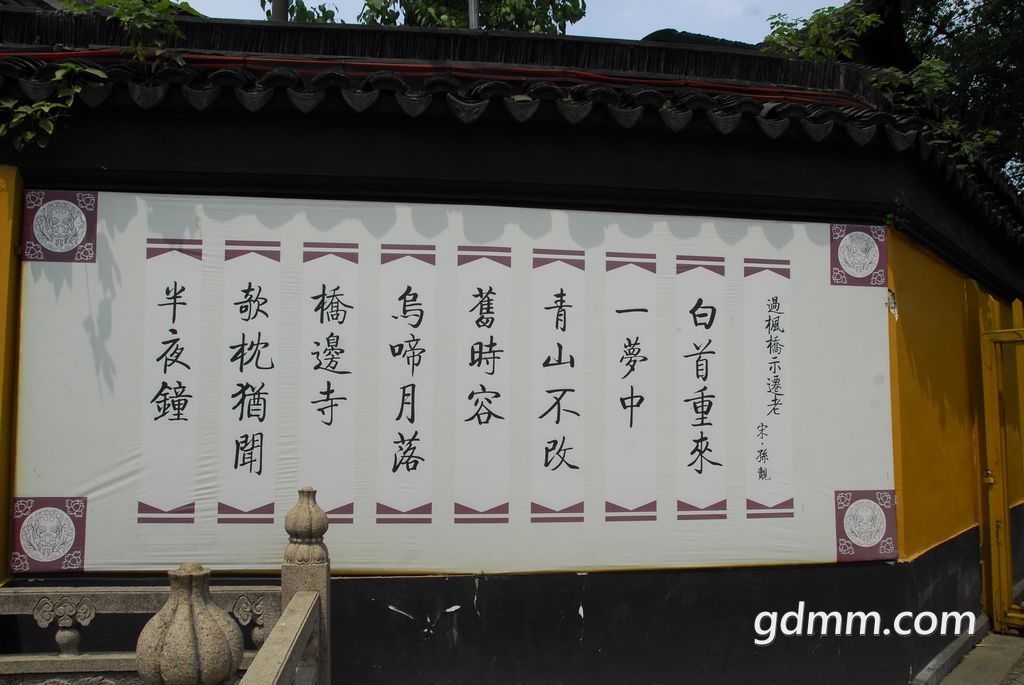 過楓橋示遷老 宋·孫覿
白首重來
一夢中
青山不改
舊時容
烏啼月落
橋邊寺
欹枕猶聞
半夜鐘
gdmm.com